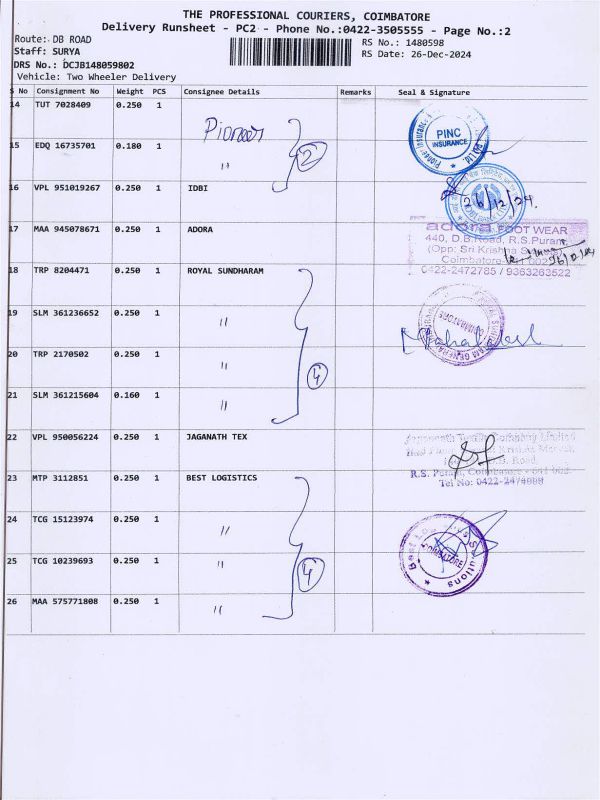 THE PROFESSIONAL COURIERS, COIMBATORE
Delivery Runsheet - PC2 - Phone No.:0422-3505555 - Page No.:2
Route: DB ROAD
RS No.: 1480598
Staff: SURYA
RS Date: 26-Dec-2024
DRS No.: DCJB148059802
Vehicle: Two Wheeler Delivery
S No Consignment No Weight PCS Consignee Details Remarks Seal & Signature
14 TUT 7028409 0.250 1 Pioneer
PINC
INSURANCE
15 EDQ 16735701 0.180 1 " 2
16 VPL 951019267 0.250 1 IDBI
26/12/24
17 MAA 945078671 0.250 1 ADORA
adora FOOT WEAR
440, D.B.Road, R.S.Puram,
(Opp: Sri Krishna
Coimbatore
0422-2472785 / 9363263522
18 TRP 8204471 0.250 1 ROYAL SUNDHARAM
19 SLM 361236652 0.250 1 "
COIMBATORE
20 TRP 2170502 0.250 1 " 4
21 SLM 361215604 0.160 1 "
22 VPL 950056224 0.250 1 JAGANATH TEX
Jaganath Textile Company Limited
R.S. Puram, Coimbatore
Tel No: 0422-
23 MTP 3112851 0.250 1 BEST LOGISTICS
24 TCG 15123974 0.250 1 "
Best Solutions
COIMBATORE
25 TCG 10239693 0.250 1 " 4
26 MAA 575771808 0.250 1 "